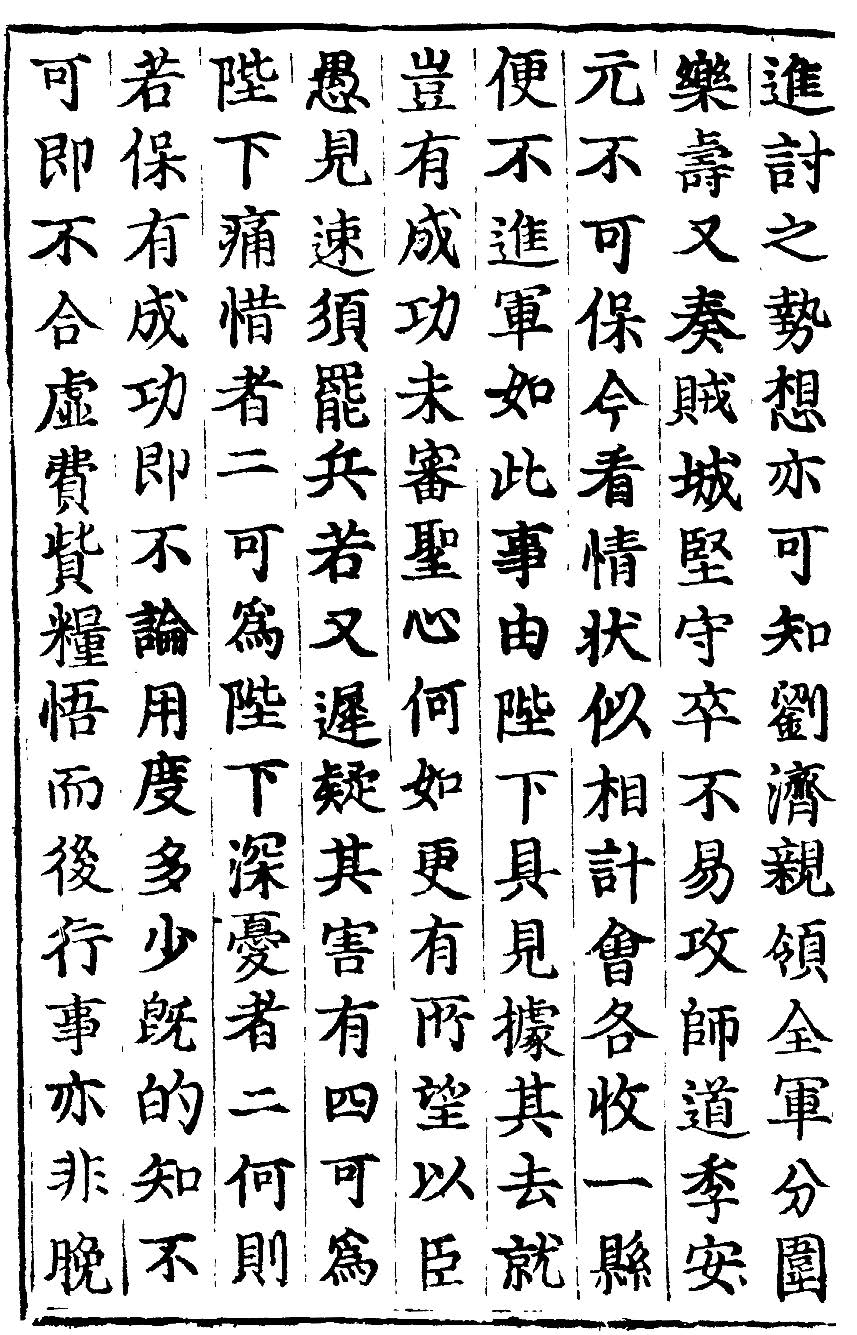 進討之勢想亦可知劉濟親領全軍分圍
樂壽又奏賊城堅守卒不易攻師道季安
元不可保今看情狀似相計會各收一縣
便不進軍如此事由陛下具見據其去就
豈有成功未審聖心何如更有所望以臣
愚見速須罷兵若又遲疑其害有四可為
陛下痛惜者二可為陛下深憂者二何則
若保有成功即不論用度多少既的知不
可即不合虛費貲糧悟而後行事亦非晚